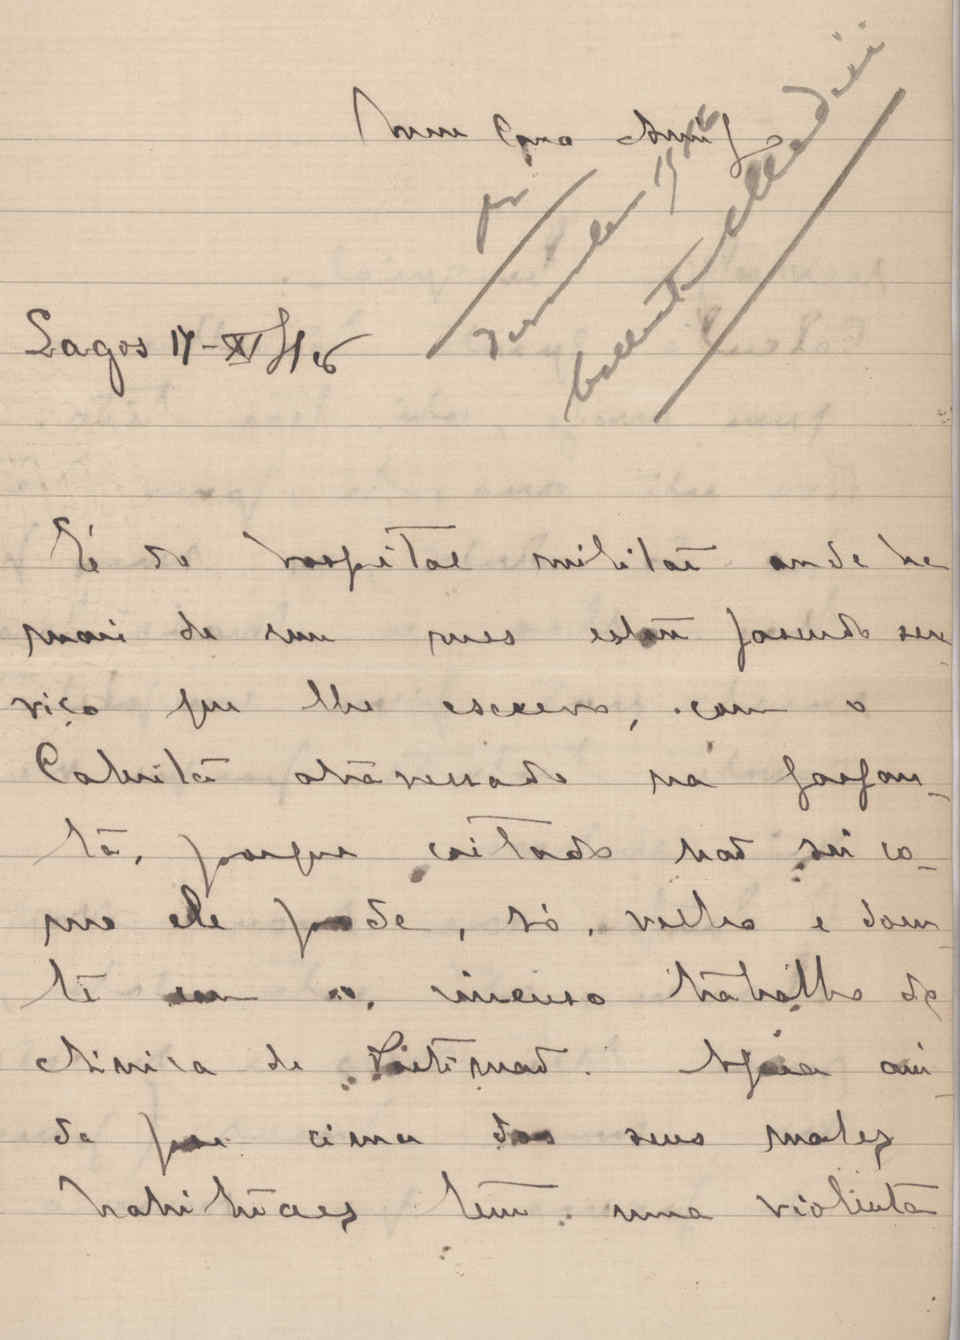 Meu Caro Amigo
Lagos 17-XI-916
É do hospital militar onde ha
mais de um mes estou fasendo ser-
viço que lhe escrevo, com o
Cabrita atravessado na gargan-
ta, porque coitado não sei co-
mo ele pode, só, velho e doen-
te com o imenso trabalho da
clinica de Portimão. Agora ain-
da por cima dos seus males
habituaes tem uma violenta